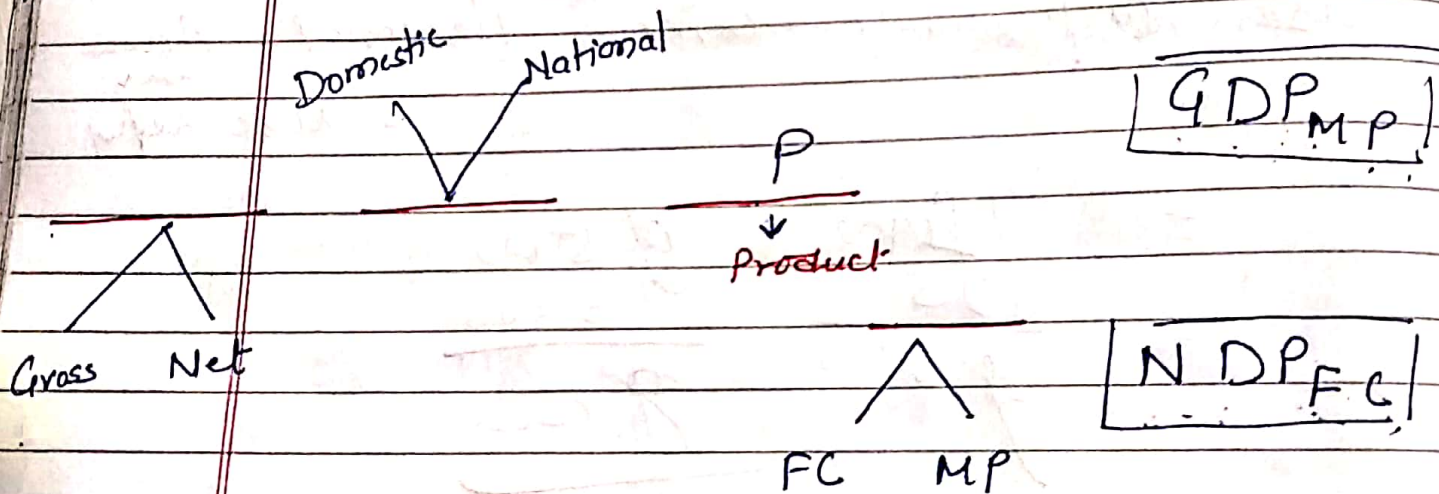 Domestic National
GDP MP
P
Product
Gross Net
NDP FC
FC MP